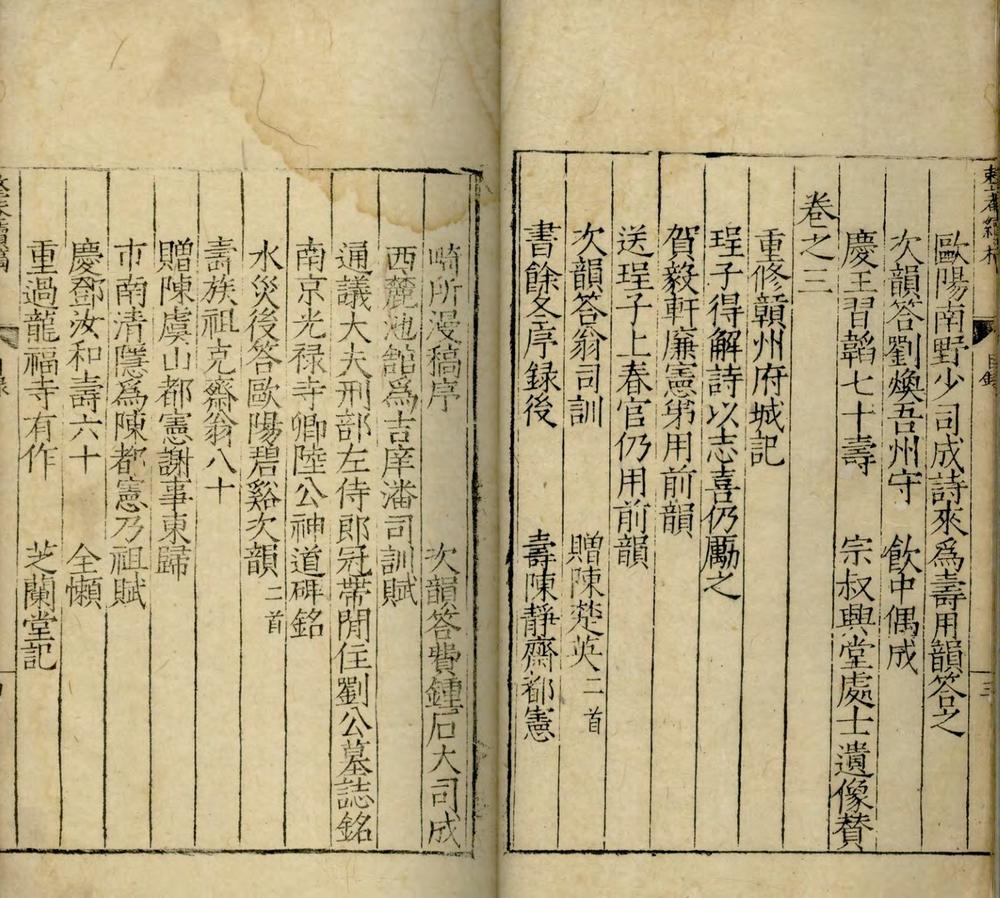 整菴續稿 目錄 三
歐陽南野少司成詩來爲壽用韻答之
次韻答劉煥吾州守 飲中偶成
慶王習韜七十壽 宗叔興堂處士遺像贊
卷之三
重修贛州府城記
珵子得解詩以志喜仍勵之
賀毅軒廉憲弟用前韻
送珵子上春官仍用前韻
次韻答翁司訓 贈陳楚英二首
書餘冬序録後 壽陳靜齋都憲
畸所漫稿序 次韻答費鍾石大司成
西麓池舘爲吉庠潘司訓賦
通議大夫刑部左侍郎冠帶閒住劉公墓誌銘
南京光禄寺卿陸公神道碑銘
水災後答歐陽碧谿次韻二首
壽族祖克齋翁八十
贈陳虞山都憲謝事東歸
市南清隱爲陳都憲乃祖賦
慶鄧汝和壽六十 全懶
重過龍福寺有作 芝蘭堂記